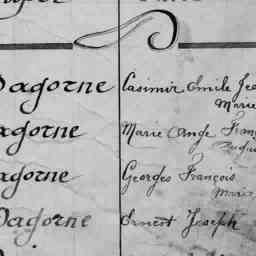 Dagorne Casimir Emile Je
Marie
Dagorne Marie Ange Fran
Dagorne Georges François
Marie
Dagorne Ernest Joseph